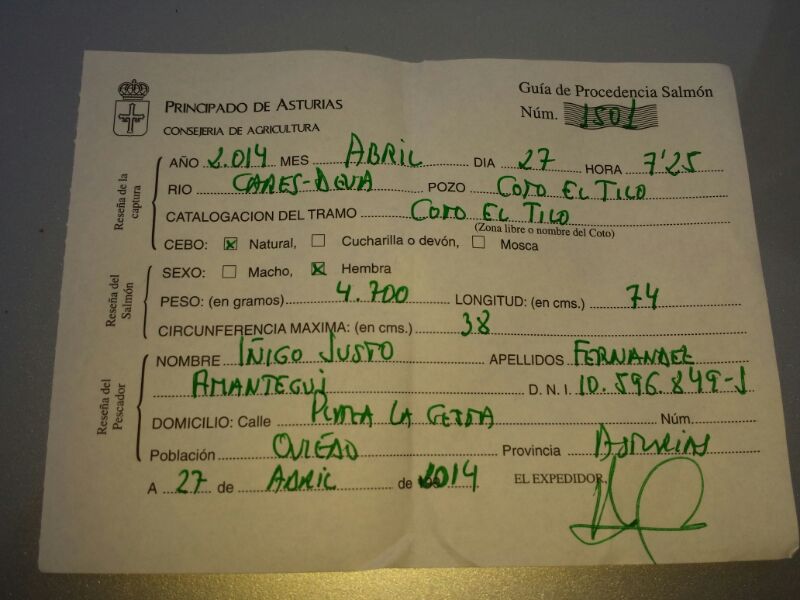 PRINCIPADO DE ASTURIAS
CONSEJERIA DE AGRICULTURA
Guía de Procedencia Salmón
Núm. 1501
Reseña de la captura
AÑO 2.014 MES ABRIL DIA 27 HORA 7'25
RIO CARES-DEVA POZO COTO EL TILO
CATALOGACION DEL TRAMO COTO EL TILO
(Zona libre o nombre del Coto)
CEBO: ☒ Natural, ☐ Cucharilla o devón, ☐ Mosca
Reseña del Salmón
SEXO: ☐ Macho, ☒ Hembra
PESO: (en gramos) 4.700 LONGITUD: (en cms.) 74
CIRCUNFERENCIA MAXIMA: (en cms.) 38
Reseña del Pescador
NOMBRE IÑIGO JUSTO APELLIDOS FERNANDEZ
AMANTEGUI D. N. I. 10.596.849-J
DOMICILIO: Calle PLAZA LA GESTA Núm.
Población OVIEDO Provincia ASTURIAS
A 27 de ABRIL de 2014 EL EXPEDIDOR,